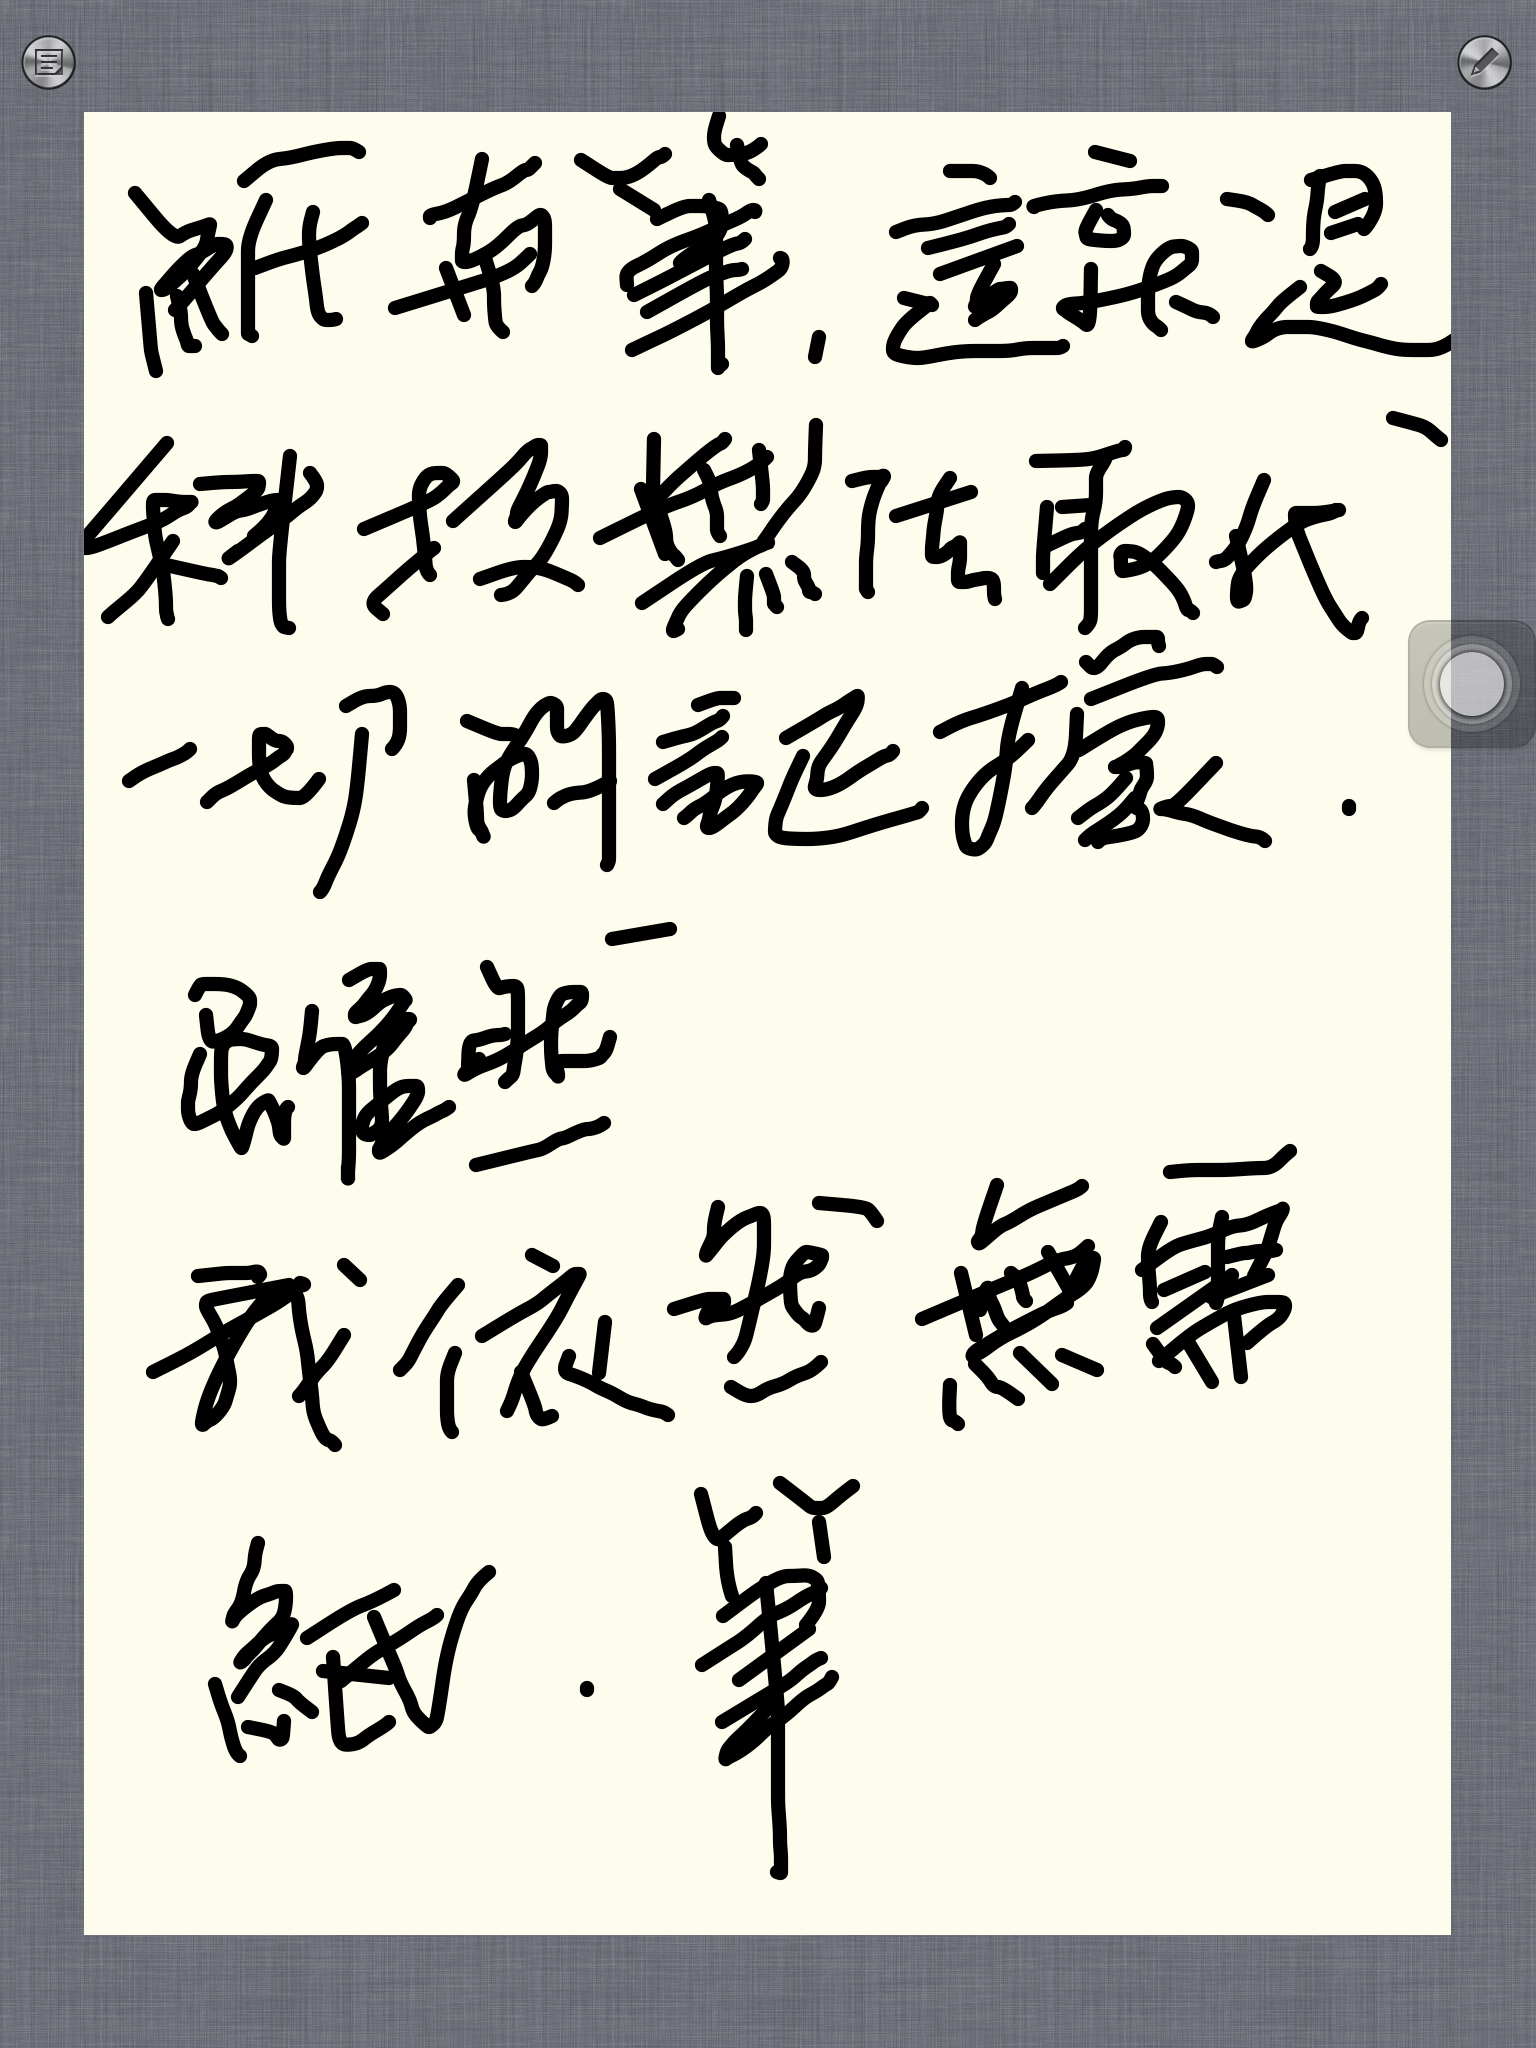 紙與筆，這就是
科技無法取代
一切的証據．
雖然
我依然無需
紙．筆